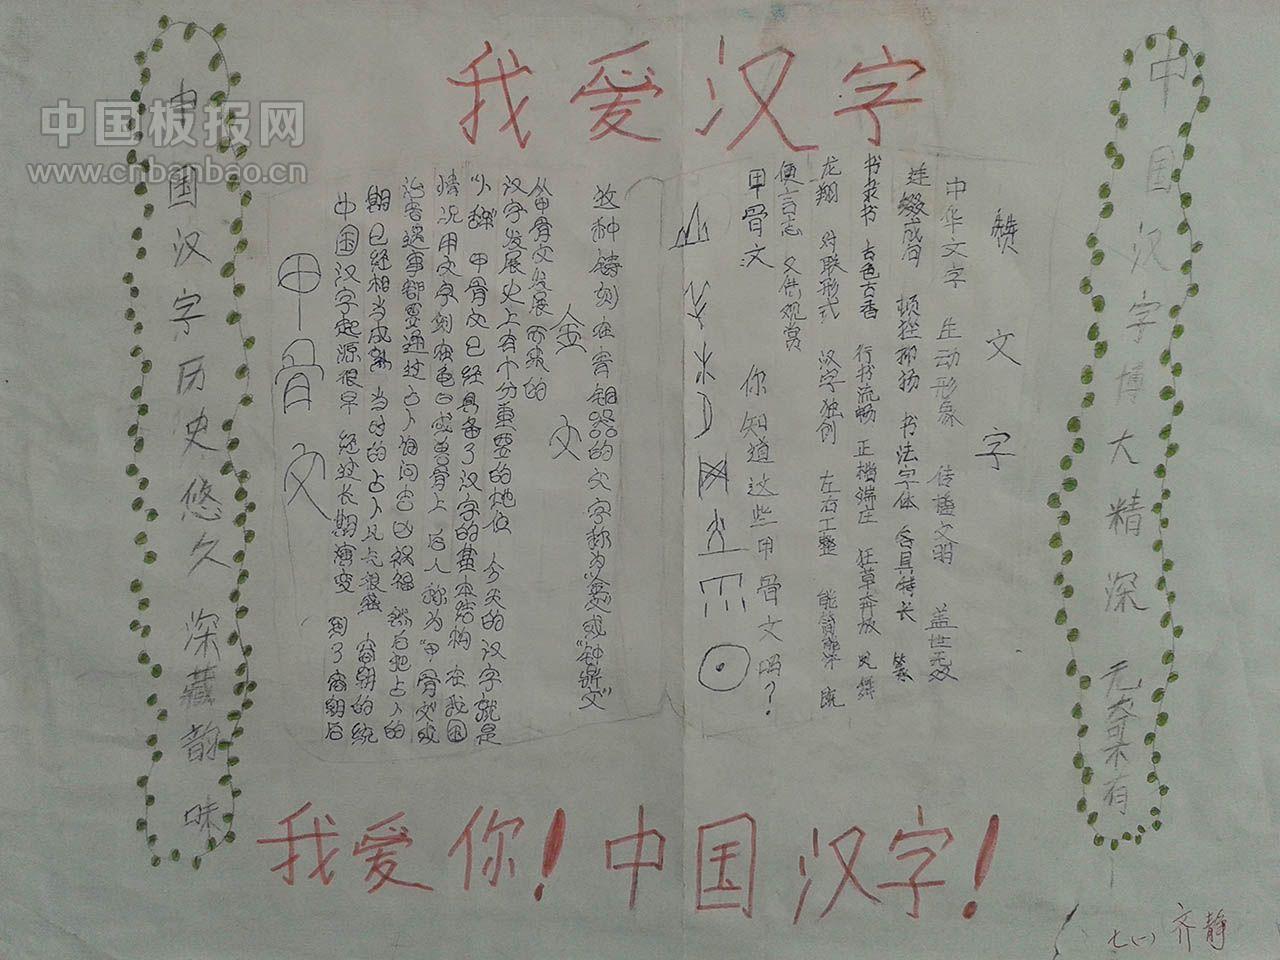 我爱汉字
中国板报网
www.cnbanbao.cn
中国汉字博大精深 元奇不有
赞文字
中华文字 生动形象 传播文明 盖世无双
连缀成语 顿挫抑扬 书法字体 各具特长 篆
书隶书 古色古香 行书流畅 正楷端庄 狂草奔放 凤舞
龙翔 对联形式 汉字独创 左右工整 能简 既
便言志 又供观赏
甲骨文 你知道这些甲骨文吗?
金文
牧种铸刻在青铜器的文字称为金文或"钟鼎文"
从甲骨文发展而来的
汉字发展史上有十分重要的地位 今天的汉字就是
"卜辞" 甲骨文已经具备了汉字的基本结构 在我国
情况用文字刻在龟甲或兽骨上 后人称为"甲骨文"或
治者遇事都要通过占卜询问吉凶祸福 然后把占卜的
期已经相当成熟 当时的占卜风气很盛 商朝的统
中国汉字起源很早 经过长期演变 到了商朝后
甲骨文
中国汉字历史悠久 深藏韵味
我爱你!中国汉字!
七(一) 齐静